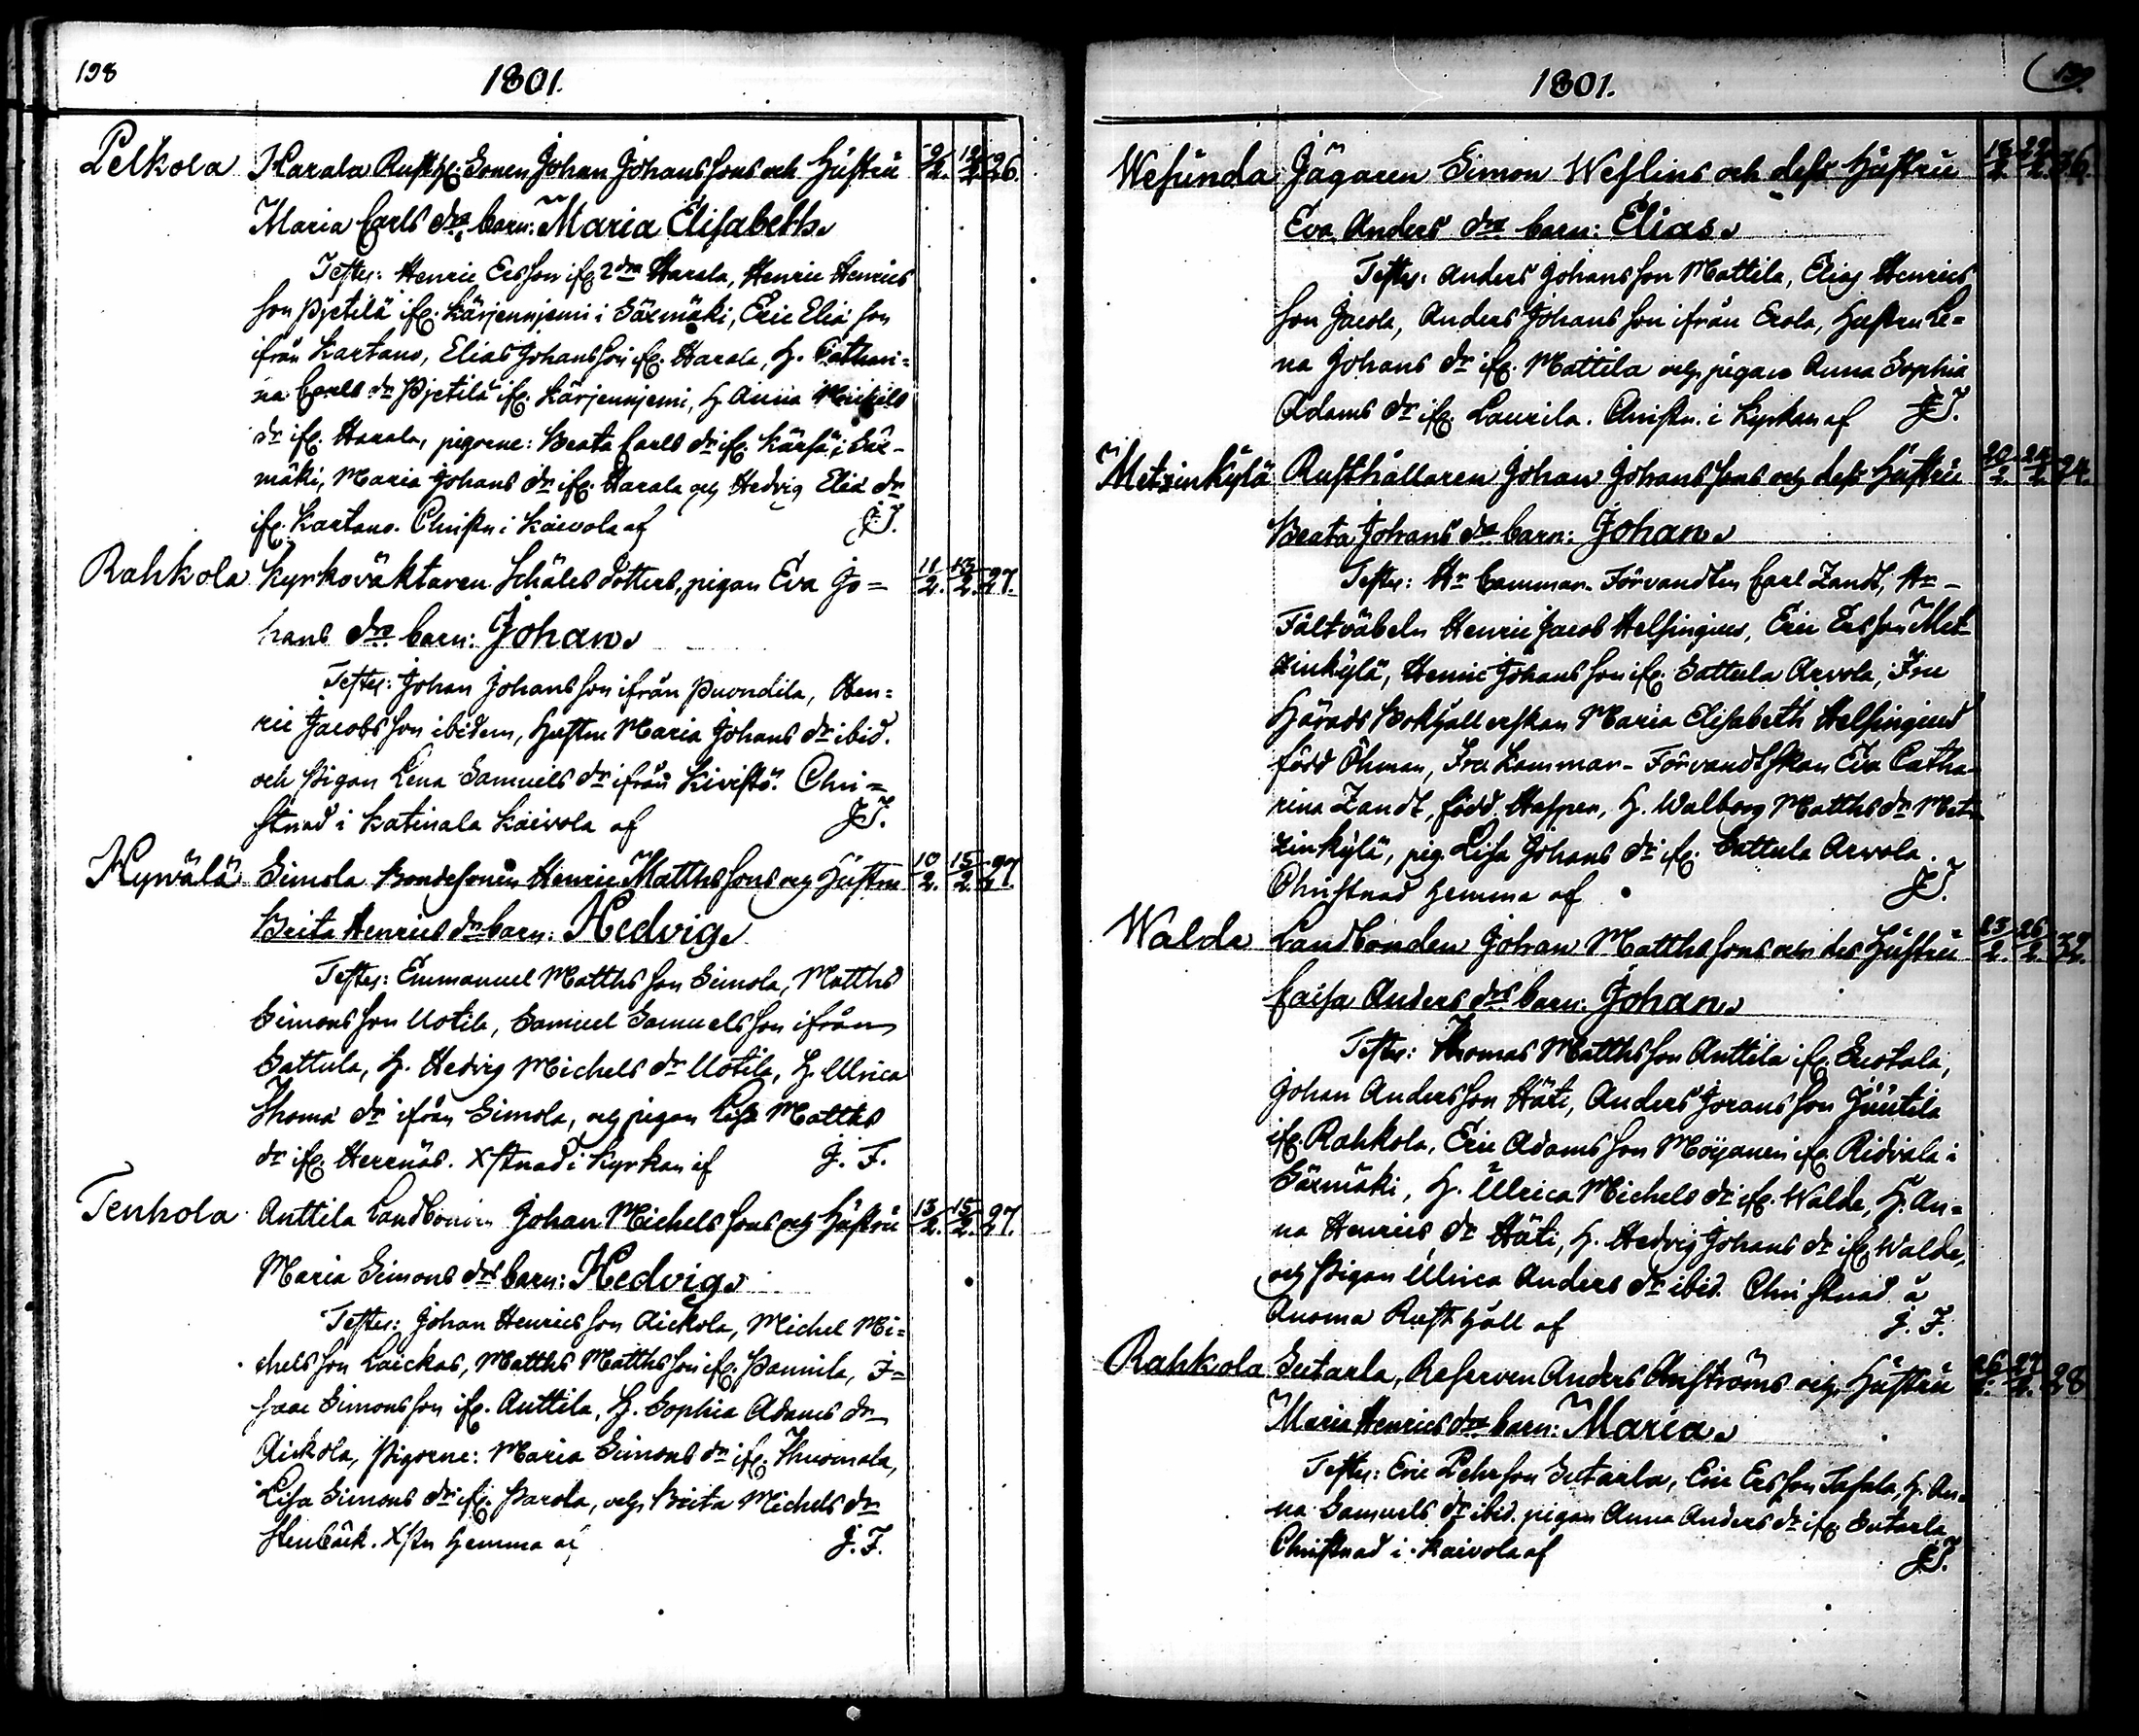 198
1801.
Pelkola Harala Rusth: Sonen Johan Johans sons och Hustru 9/2. 12/2. 26.
Maria Carls dra barn: Maria Elisabeth.
Testes: Henric Ersson ifr. 2dra Harala, Henric Henrics
son Pjetilä ifr. Kärjennjemi i Säxmäki, Eric Eliæ son
ifrån Kartano, Elias Johansson ifr. Harala, H. Cathari=
na Carls dr Pjetilä ifr. Kärjennjemi, H. Anna Michils
dr ifr. Harala, pigorne: Beata Carls dr ifr. i Säx-
mäki, Maria Johans dr ifr. Harala och Hedvig Eliæ dr
ifr. Kartano. Christn i Kaivola af J.F.
Rahkola Kyrkoväktaren Schäles dotters, pigan Eva Jo= 11/2. 13/2. 27.
hans dra barn: Johan.
Testes: Johan Johansson ifrån Puondila, Hen=
ric Jacobsson ibidem, Hustru Maria Johans dr ibid.
och Pigan Lena Samuels dr ifrån Kivistö. Chri=
stnad i Katinala Kaivola af J.F.
Hywälä Simola Bondesonen Henric Matths sons och Hustru 10/2. 15/2. 27.
Brita Henrics dr barn: Hedvig.
Testes: Emmanuel Matths son Simola, Matths
Simonsson Uotila, Samuel Samuelsson ifrån
Sattula, H. Hedvig Michels dr Uotila, H. Ulrica
Thomæ dr ifrån Simola, och pigan Lisa Matths
dr ifr. Herrnäs. Xstnad i Kyrkan af J. F.
Tenhola Anttila Landbonden Johan Michels sons och Hustru 13/2. 15/2. 27.
Maria Simons dra barn: Hedvig.
Testes: Johan Henrics son Aickola, Michel Mi=
chelsson Laickas, Matths Matthsson ifr. Pannila, I=
saac Simonsson ifr. Anttila, H. Sophia Adams dr
Aickola, Pigorne: Maria Simons dr ifr. Thuomala,
Lisa Simons dr ifr. Parola, och Brita Michels dr
Stenbäck. Xstn hemma af J. F.
1801.
199.
Wesunda Jägaren Simon Weslins och dess Hustru 22/2. 36.
Eva Anders dra barn: Elias.
Testes: Anders Johansson Mattila, Elias Henrics
son Jacola, Anders Johansson ifrån Erola, Hustru Le=
na Johans dr ifr. Mattila och pigan Anna Sophia
Adams dr ifr. Laurila. Christn. i Kyrkan af J.F.
Metzinkylä Rusthållaren Johan Johans sons och dess Hustru 20/2. 24/2. 24.
Beata Johans dr barn: Johan.
Testes: Hr Cammar-Förvandten Carl Zandt, Hr
Fältväbeln Henric Jacob Helsingius, Eric Ersson Met-
zinkylä, Henric Johansson ifr. Sattula Arvola, Fru
Härads Bokhållerskan Maria Elisabeth Helsingius
född Öhman, Fru Kammar-Förvandtskan Eva Catha-
rina Zandt, född Hasper, H. Walborg Matths dr Met-
zinkylä, pig. Lisa Johans dr ifr. Sattula Arvola.
Christnad hemma af J.F.
Walde Landbonden Johan Matths sons och des Hustru 23/2. 26/2. 32.
Caisa Anders drs barn: Johan.
Testes: Thomas Matthsson Anttila ifr. Erotala,
Johan Andersson Häti, Anders Joransson Juutila
ifr. Rahkola, Eric Adamsson Moijanen ifr. Ridvala i
Säxmäki, H. Ulrica Michels dr ifr. Walde, H. An=
na Henrics dr Häti, H. Hedvig Johans dr ifr. Walde,
och Pigan Ulrica Anders dr ibid. Christnad å
Anoma Rusthåll af J. F.
Rahkola Sutarla, Reserven Anders Anströms och Hustru 26/2. 27/2. 28
Maria Henrics dra barn: Maria.
Testes: Eric Pehrsson Sutarla, Eric Ersson Tasala, H. An-
na Samuels dr ibid. pigan Anna Anders dr ifr. Sutarla
Christnad i Kaivola af J.F.